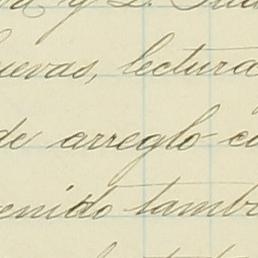 y D.
uevas, lectura
de arreglo co
enido tambi